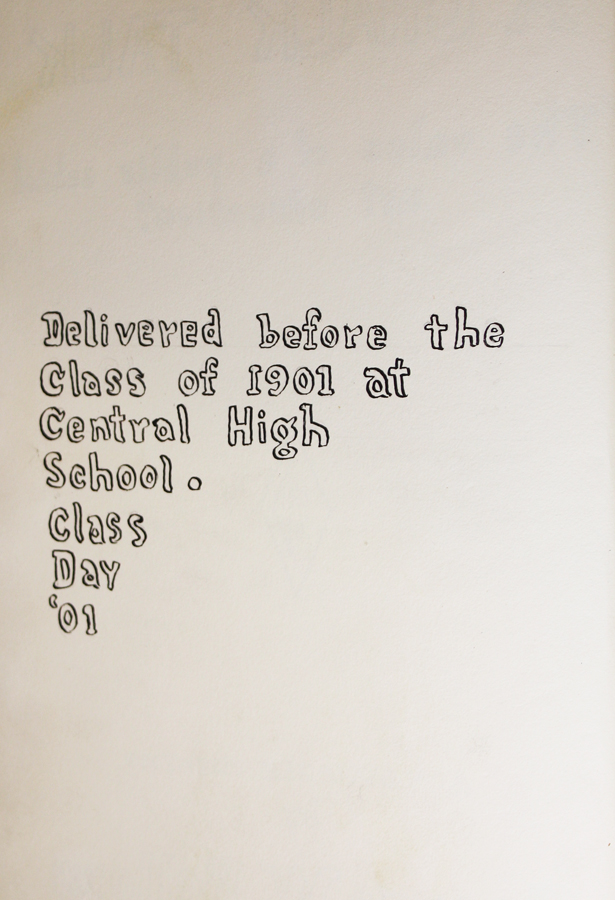 Delivered before the
Class of 1901 at
Central High
School.
Class
Day
'01